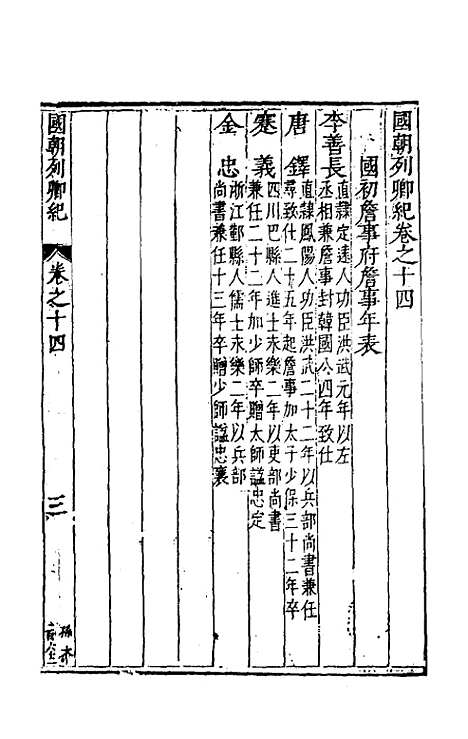 國朝列卿紀卷之十四
國初詹事府詹事年表
李善長直隸定遠人功臣洪武元年以左
丞相兼詹事封韓國公四年致仕
唐鐸直隸鳳陽人功臣洪武二十二年以兵部尚書兼任
尋致仕二十五年起詹事加太子少保三十二年卒
蹇義四川巴縣人進士永樂二年以吏部尚書
兼任二十二年加少師卒贈太師謚忠定
金忠浙江鄞縣人儒士永樂二年以兵部
尚書兼任十三年卒贈少師謚忠襄
國朝列卿紀
卷之十四
三